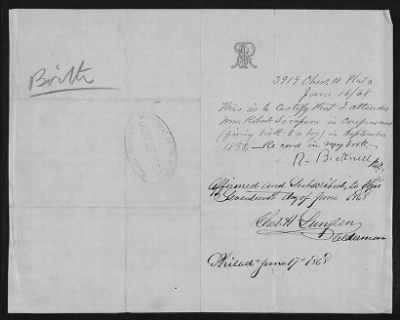 Birth
3919 Chesnut Phila
June 16/68
This is to certify that I attended
Mrs Robert Simpson in confinement
(giving birth to a boy) in September
Record in my book.
R. Bicknell
Affirmed and Subscribed to this
day of June 1868
Chas. H. Lunden
Alderman
Philada June 17th 1868